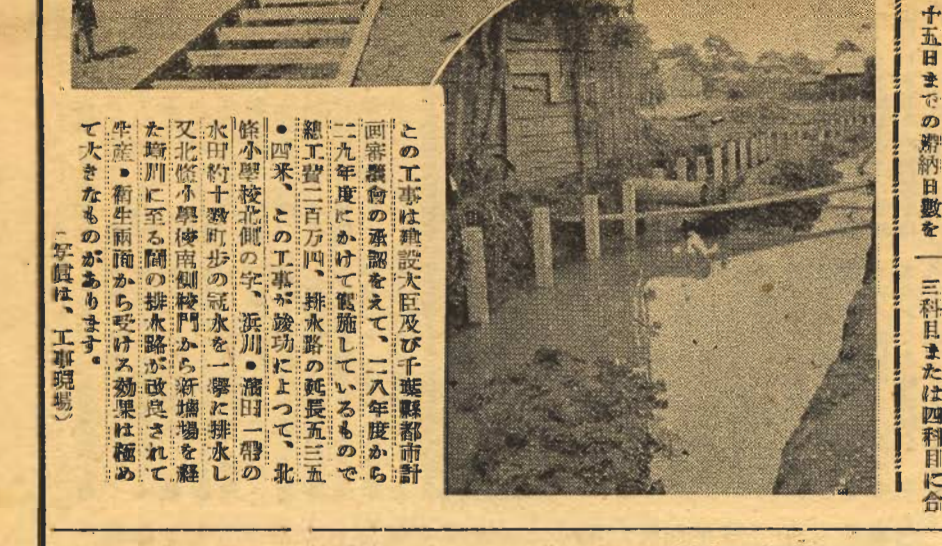 十五日までの滞納日數を
三科目または四科目に合
この工事は建設大臣及び千葉縣都市計
画審議会の承認をえて、二八年度から
二九年度にかけて実施しているもので
總工費二百万円、排水路の延長五三五
・四米、この工事が竣功によつて、北
條小學校北側の字、浜川・蒲田一帶の
水田約十数町歩の冠水を一擧に排水し
又北條小學校南側校門から新塩場を経
た境川に至る間の排水路が改良されて
生産・衛生両面から受ける効果は極め
て大きなものがあります。
(写眞は、工事現場)